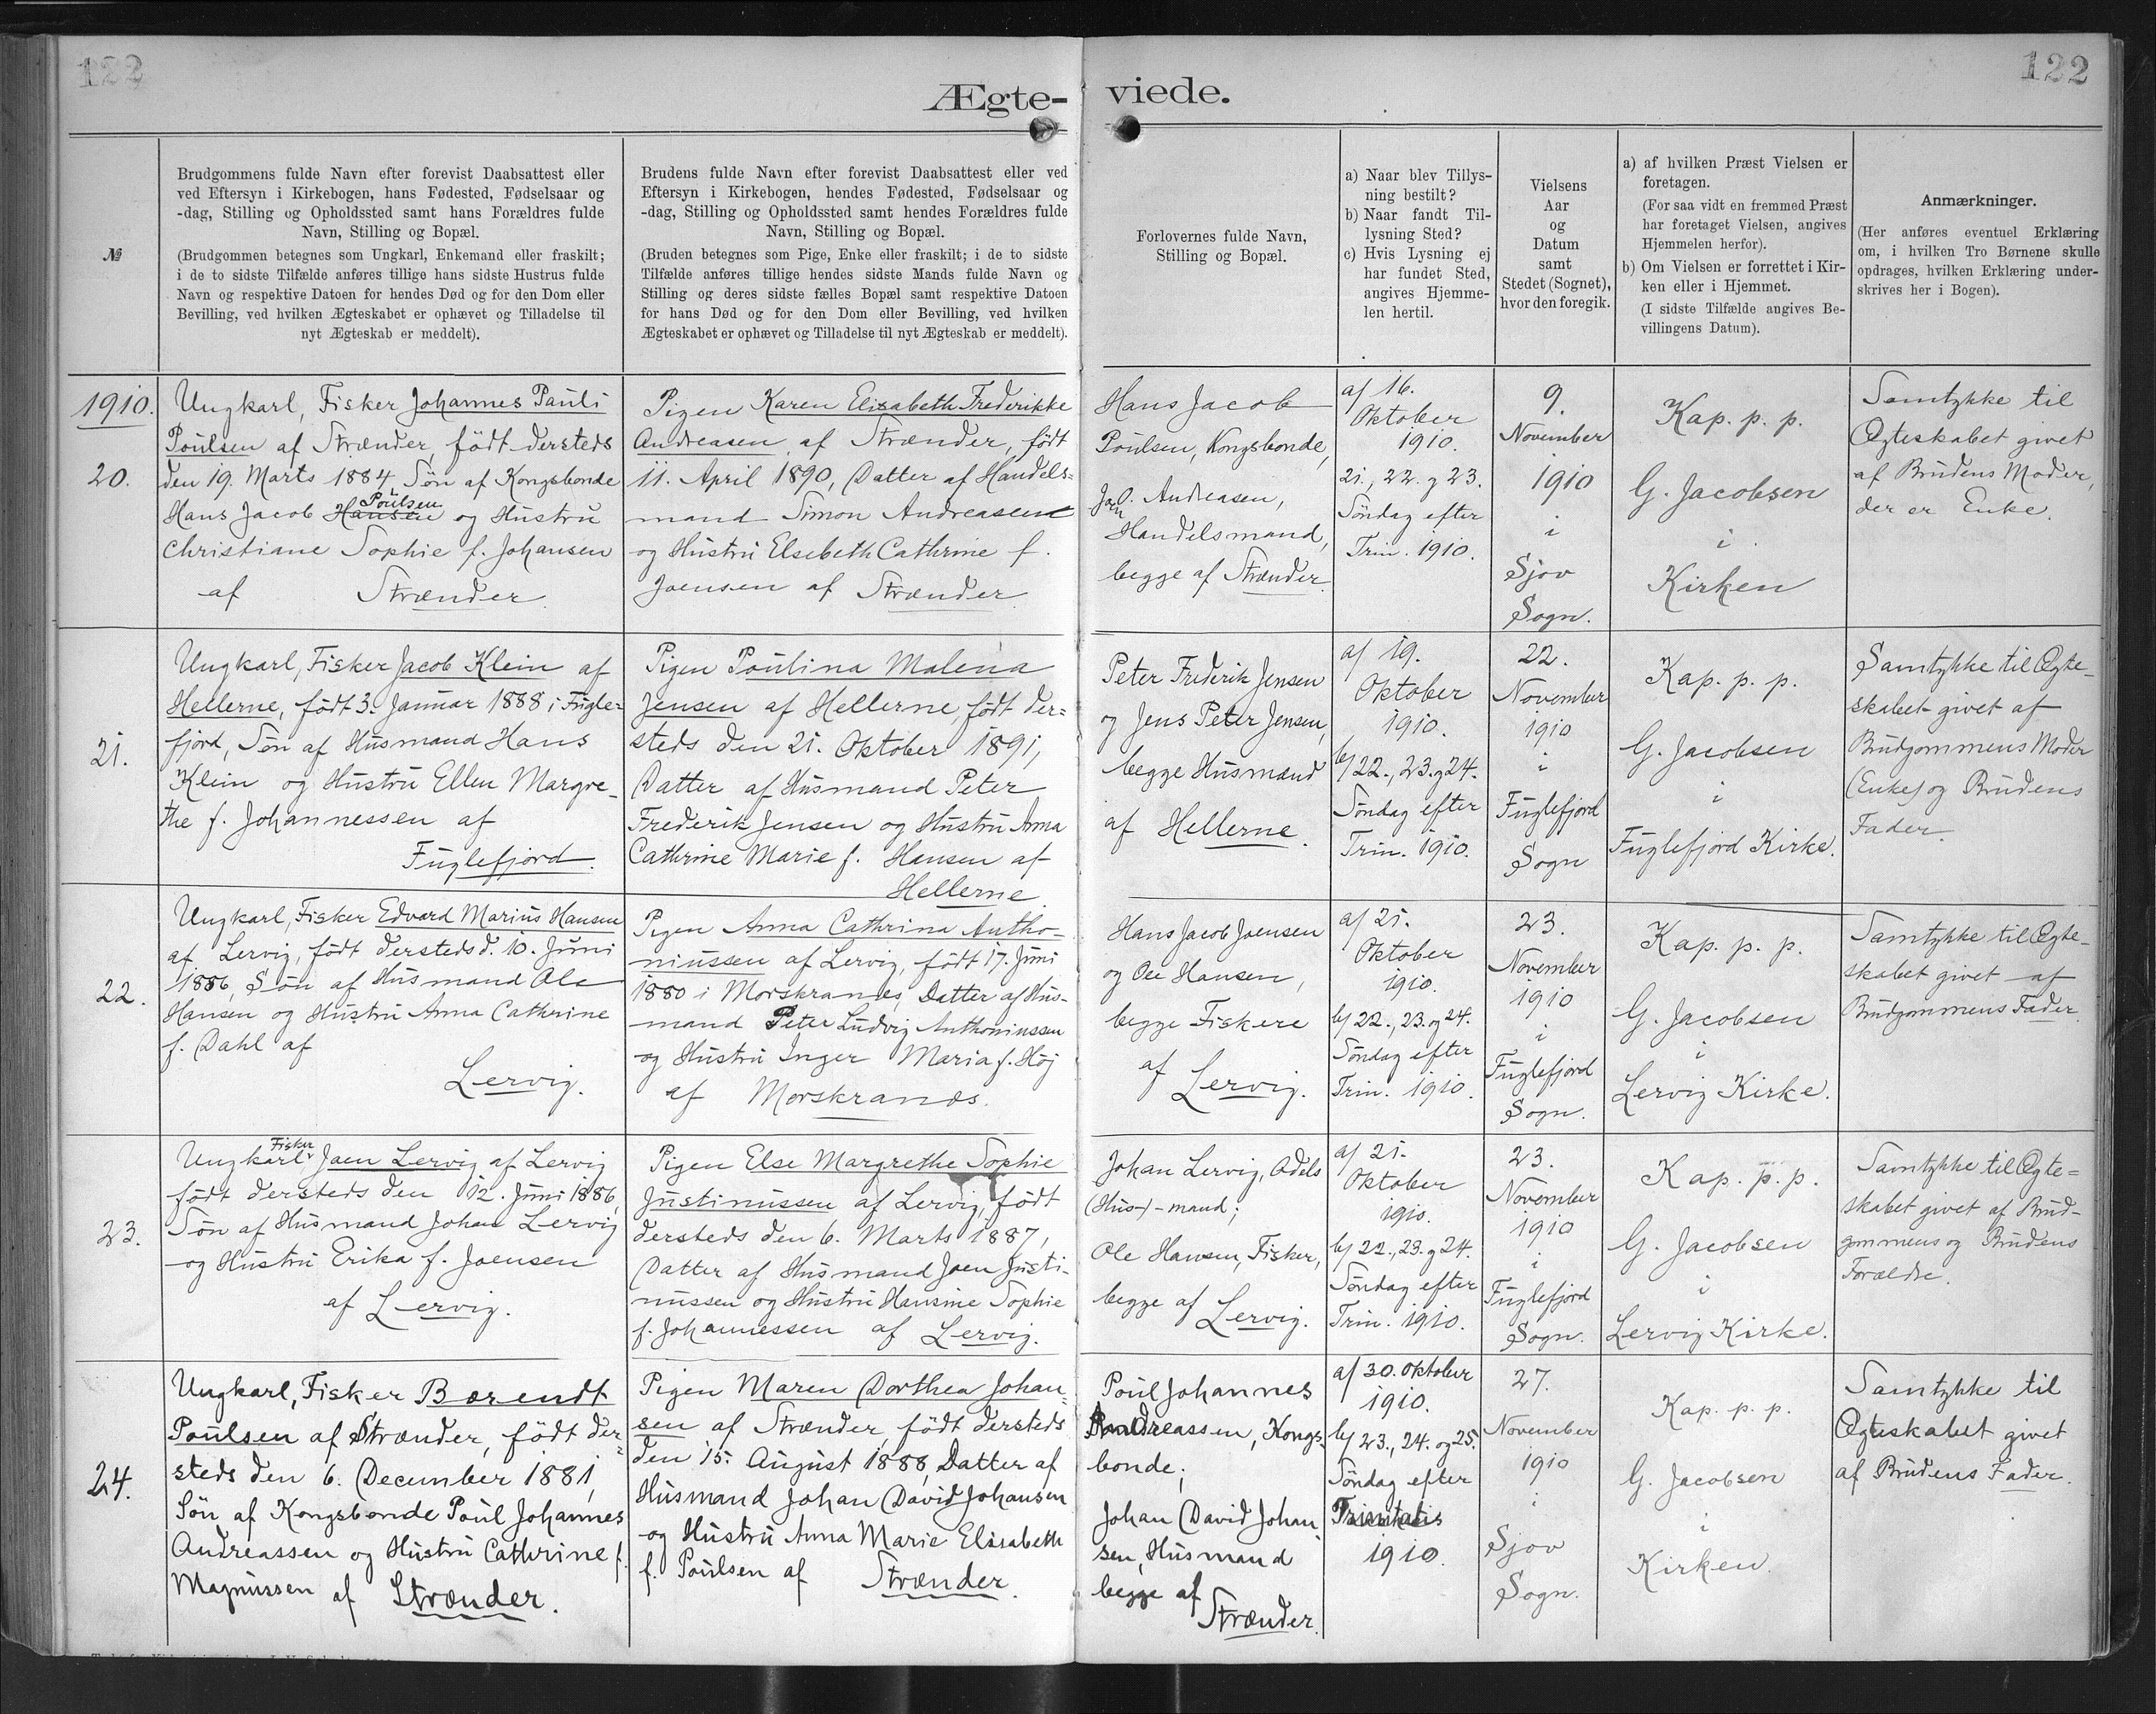 122
122
Ægte-
viede.
№
Brudgommens fulde Navn efter forevist Daabsattest eller
ved Eftersyn i Kirkebogen, hans Fødested, Fødselsaar og
-dag, Stilling og Opholdssted samt hans Forældres fulde
Navn, Stilling og Bopæl.
(Brudgommen betegnes som Ungkarl, Enkemand eller fraskilt;
i de to sidste Tilfælde anføres tillige hans sidste Hustrus fulde
Navn og respektive Datoen for hendes Død og for den Dom eller
Bevilling, ved hvilken Ægteskabet er ophævet og Tilladelse til
nyt Ægteskab er meddelt).
Brudens fulde Navn efter forevist Daabsattest eller ved
Eftersyn i Kirkebogen, hendes Fødested, Fødselsaar og
-dag, Stilling og Opholdssted samt hendes Forældres fulde
Navn, Stilling og Bopæl.
(Bruden betegnes som Pige, Enke eller fraskilt; i de to sidste
Tilfælde anføres tillige hendes sidste Mands fulde Navn og
Stilling og deres sidste fælles Bopæl samt respektive Datoen
for hans Død og for den Dom eller Bevilling, ved hvilken
Ægteskabet er ophævet og Tilladelse til nyt Ægteskab er meddelt).
Forlovernes fulde Navn,
Stilling og Bopæl.
a) Naar blev Tillys-
ning bestilt?
b) Naar fandt Til-
lysning Sted?
c) Hvis Lysning ej
har fundet Sted,
angives Hjemme-
len hertil.
Vielsens
Aar
og
Datum
samt
Stedet (Sognet),
hvor den foregik.
a) af hvilken Præst Vielsen er
foretagen.
(For saa vidt en fremmed Præst
har foretaget Vielsen, angives
Hjemmelen herfor).
b) Om Vielsen er forrettet i Kir-
ken eller i Hjemmet.
(I sidste Tilfælde angives Be-
villingens Datum).
Anmærkninger.
(Her anføres eventuel Erklæring
om, i hvilken Tro Børnene skulle
opdrages, hvilken Erklæring under-
skrives her i Bogen).
1910.
20.
Ungkarl, Fisker Johannes Pauli
Poulsen af Strænder, født dersteds
den 19. Marts 1884, Søn af Kongsbonde
Poulsen
Hans Jacob Hansen og Hustru
Christiane Sophie f. Johansen
af Strænder
Pigen Karen Elisabeth Frederikke
Andreasen af Strænder, født
11. April 1890, Datter af Handels=
mand Simon Andreasen
og Hustru Elsebeth Cathrine f.
Joensen af Strænder
Hans Jacob
Poulsen, Kongsbonde,
Joen
O. Andreasen,
Handelsmand,
begge af Strænder
a/ 16.
Oktober
1910.
21., 22. og 23.
Søndag efter
Trin. 1910.
9.
November
1910
i
Sjov
Sogn.
Kap. p. p.
G. Jacobsen
i
Kirken
Samtykke til
Ægteskabet givet
af Brudens Moder,
der er Enke.
21.
Ungkarl, Fisker Jacob Klein af
Hellerne, født 3. Januar 1888 i Fugle=
fjord, Søn af Husmand Hans
Klein og Hustru Ellen Margre-
the f. Johannessen af
Fuglefjord.
Pigen Poulina Malena
Jensen af Hellerne, født der=
steds den 21. Oktober 1891,
Datter af Husmand Peter
Frederik Jensen og Hustru Anna
Cathrine Marie f. Hansen af
Hellerne.
Peter Frederik Jensen
og Jens Peter Jensen,
begge Husmænd
af Hellerne.
a/ 19.
Oktober
1910.
b/ 22., 23. og 24.
Søndag efter
Trin. 1910.
22.
November
1910
i
Fuglefjord
Sogn
Kap. p. p.
G. Jacobsen
i
Fuglefjord Kirke.
Samtykke til Ægte-
skabet givet af
Brudgommens Moder
(Enke) og Brudens
Fader.
22.
Ungkarl, Fisker Edvard Marius Hansen
af Lervig, født dersteds d. 10. Juni
1886, Søn af Husmand Ole
Hansen og Hustru Anna Cathrine
f. Dahl af
Lervig.
Pigen Anna Cathrina Antho-
niussen af Lervig, født 17. Juni
1880 i Morskranes, Datter af Hus-
mand Peter Ludvig Anthoniussen
og Hustru Inger Maria f. Høj
af Morskranes.
Hans Jacob Joensen
og Ole Hansen,
begge Fiskere
af Lervig.
a/ 21.
Oktober
1910.
b/ 22., 23. og 24.
Søndag efter
Trin. 1910.
23.
November
1910
i
Fuglefjord
Sogn.
Kap. p. p.
G. Jacobsen
i
Lervig Kirke.
Samtykke til Ægte-
skabet givet af
Brudgommens Fader
23.
Fisker
Ungkarl Joen Lervig af Lervig
født dersteds den 12. Juni 1886,
Søn af Husmand Johan Lervig
og Hustru Erika f. Joensen
af Lervig.
Pigen Else Margrethe Sophie
Justinussen af Lervig, født
dersteds den 6. Marts 1887,
Datter af Husmand Joen Justi-
nussen og Hustru Hansine Sophie
f. Johannessen af Lervig.
Johan Lervig, Odels
(Hus-)-mand;
Ole Hansen, Fisker,
begge af Lervig.
a/ 21.
Oktober
1910.
b/ 22., 23. og 24.
Søndag efter
Trin. 1910.
23.
November
1910
i
Fuglefjord
Sogn.
Kap. p. p.
G. Jacobsen
i
Lervig Kirke.
Samtykke til Ægte=
skabet givet af Brud-
gommens og Brudens
Forældre.
24.
Ungkarl, Fisker Bærendt
Poulsen af Strænder, født der=
steds den 6. December 1881,
Søn af Kongsbonde Poul Johannes
Andreassen og Hustru Cathrine f.
Magnussen af Strænder.
Pigen Maren Dorthea Johan=
sen af Strænder, født dersteds
den 15. August 1888, Datter af
Husmand Johan David Johansen
og Hustru Anna Marie Elisabeth
f. Poulsen af Strænder.
Poul Johannes
Andreassen, Kongs-
bonde;
Johan David Johan
sen, Husmand
begge af
Strænder.
a/ 30. Oktober
1910.
b/ 23., 24. og 25.
Søndag efter
Trinitatis
1910.
27.
November
1910
i
Sjov
Sogn.
Kap. p. p.
G. Jacobsen
i
Kirken.
Samtykke til
Ægteskabet givet
af Brudens Fader.